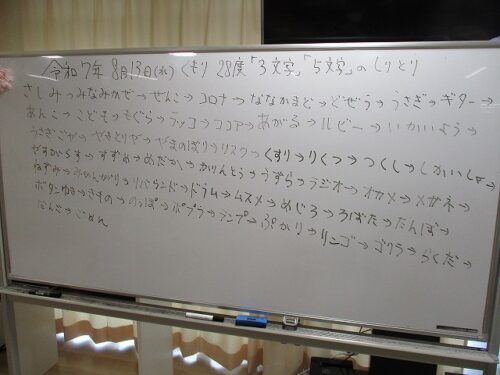 令和7年 8月13日(水) くもり 28度 「3文字」「5文字」のしりとり
さしみ→みなみかぜ→ぜんこ→コロナ→ななかまど→どぞう→うさぎ→ギター→
あんこ→こども→もぐら→ラッコ→ココア→あがる→ルビー→いかいよう→
うさぎごや→やきとりや→やまのぼり→リスク→くすり→りくつ→つくし→しかいし→
すずめ→めだか→かりんとう→うずら→ラジオ→オカメ→メガネ→
ねずみ→みかんがり→リバウンド→ドラム→ムスメ→めじろ→ろばた→たんぼ→
ボタンゆき→きもの→のっぽ→ポプラ→ランプ→ぷかり→リンゴ→ゴリラ→らくだ→
→ごめん